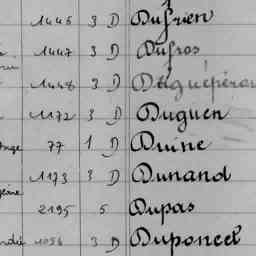 1446 3 D Dufrien
1447 3 D Dufros
1448 3 D Duguépérou
1172 3 D Duguen
77 1 D Duine
1173 3 D Dunand
2195 5 Dupas
1056 3 D Duponcel